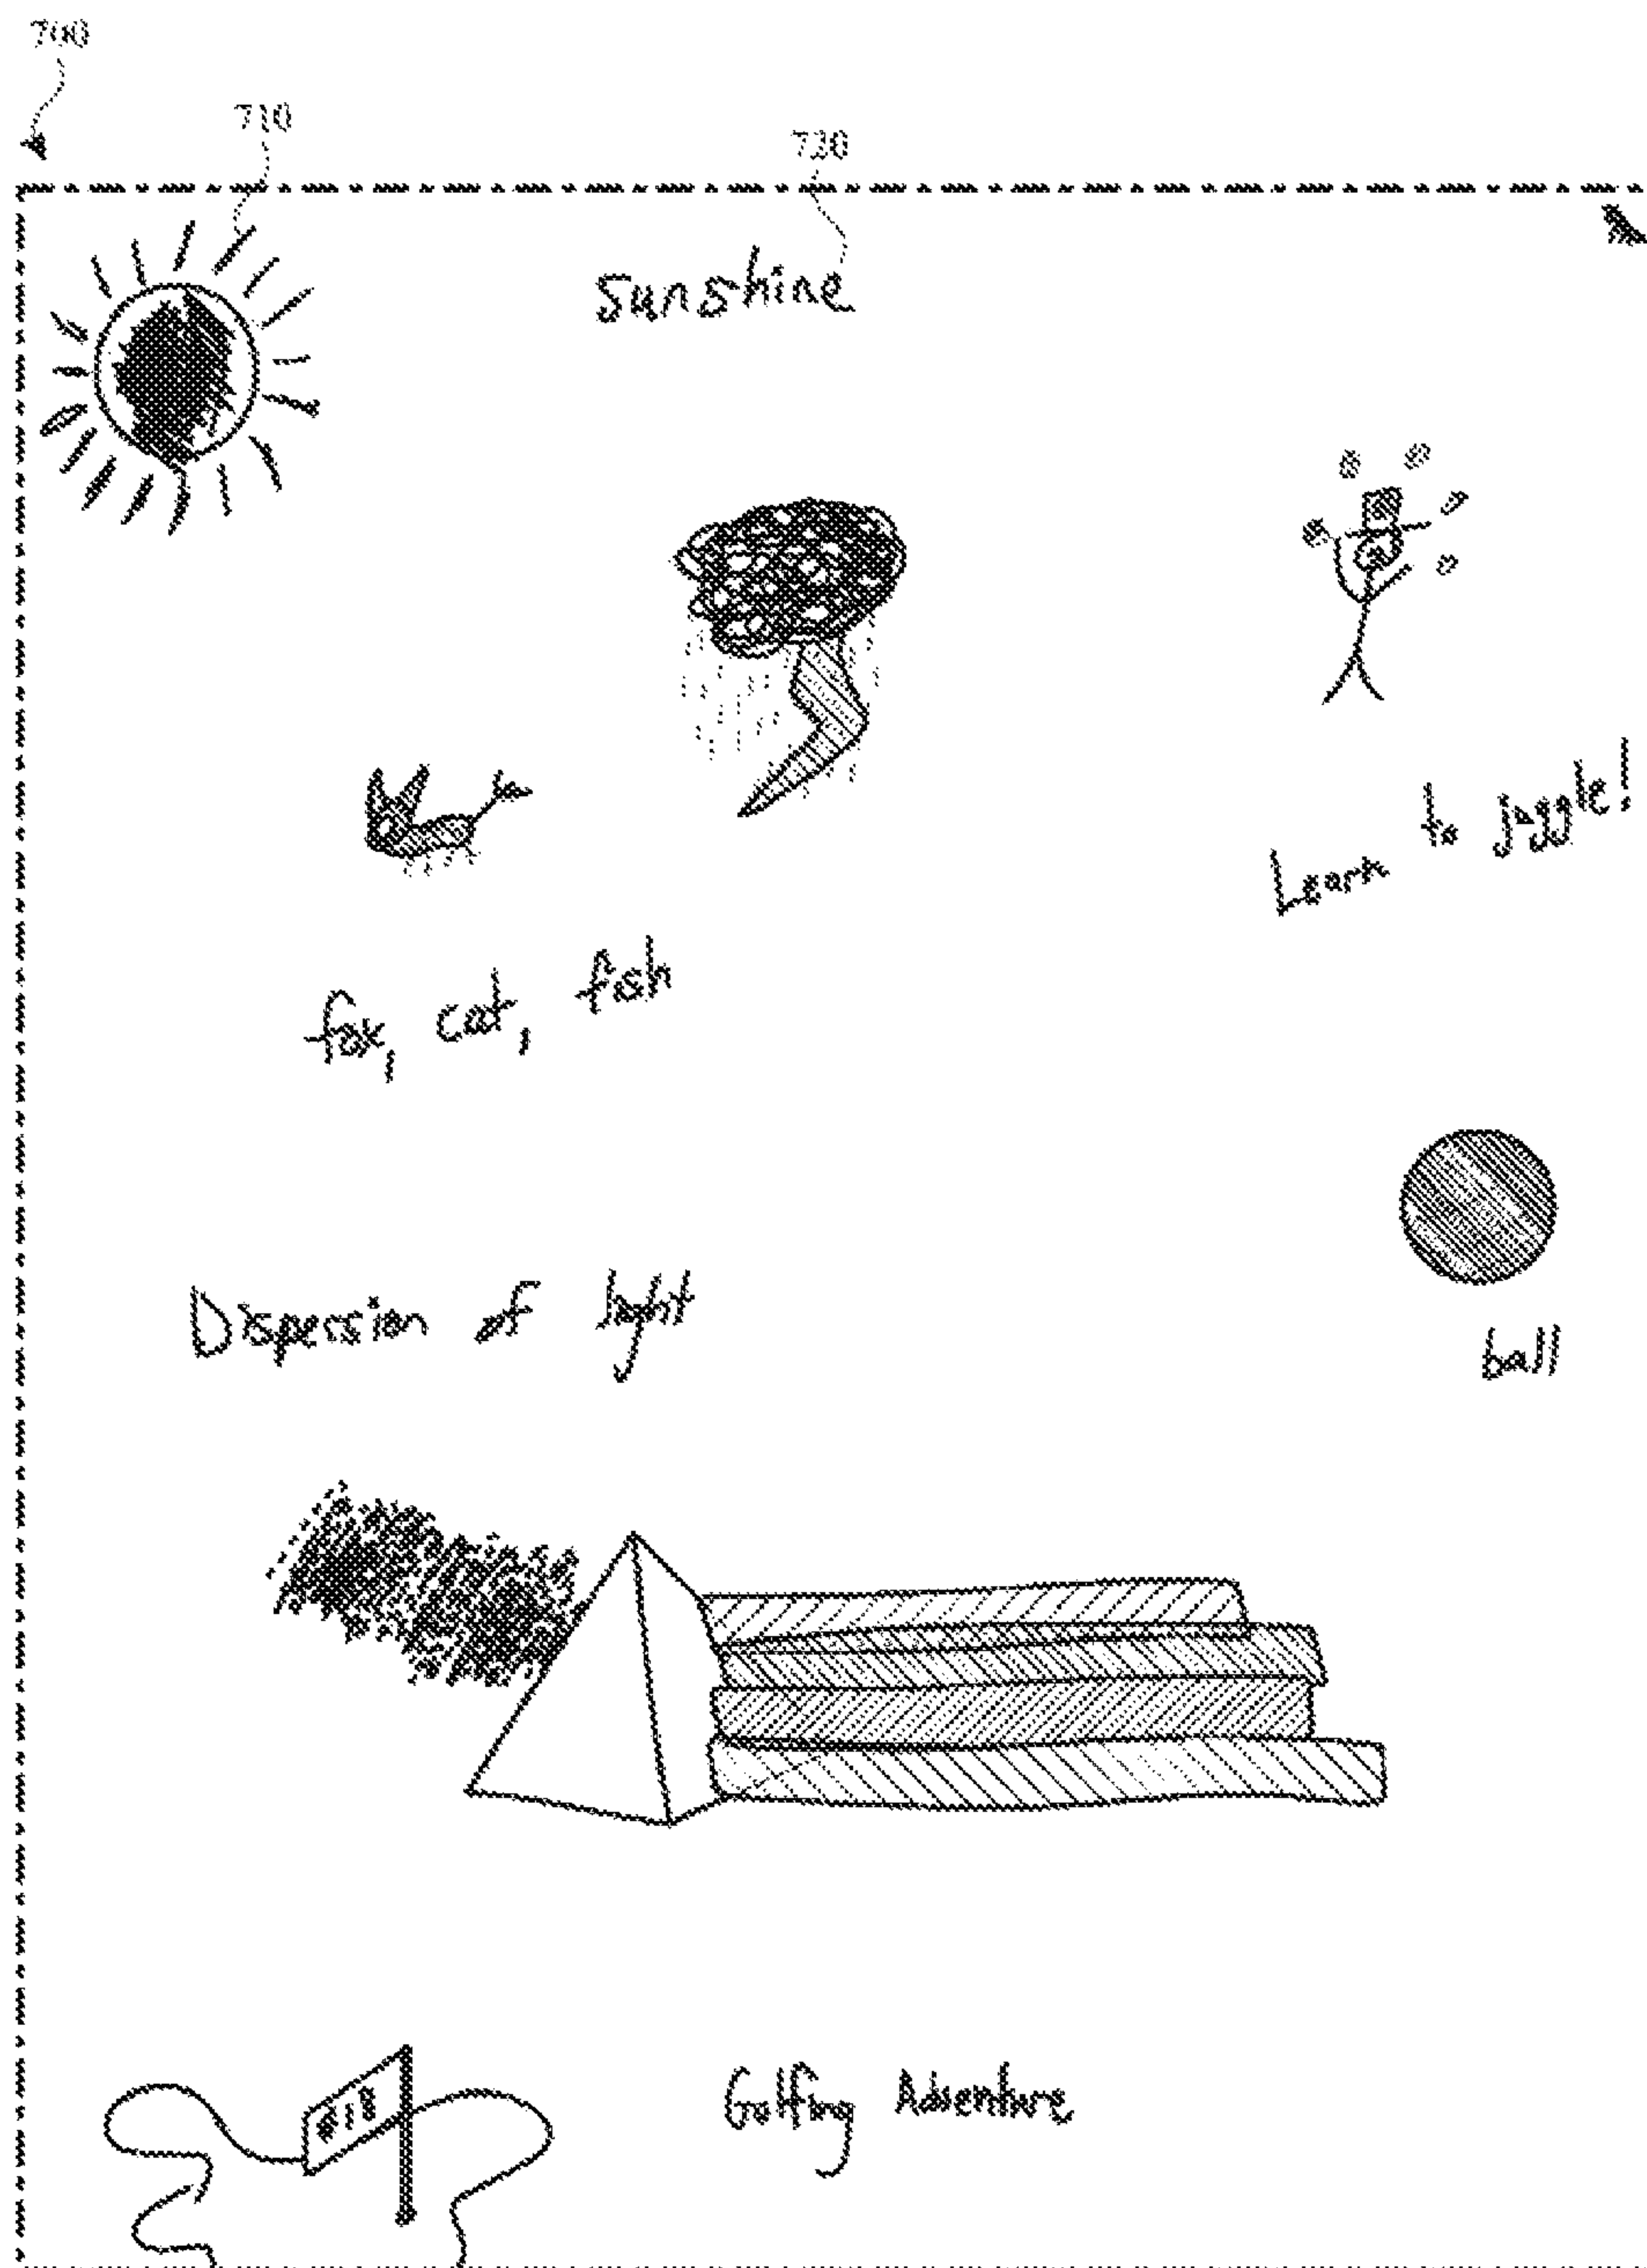 700
710
720
sunshine
Learn to juggle!
fox, cat, fish
ball
Dispersion of light
#18
Golfing Adventure